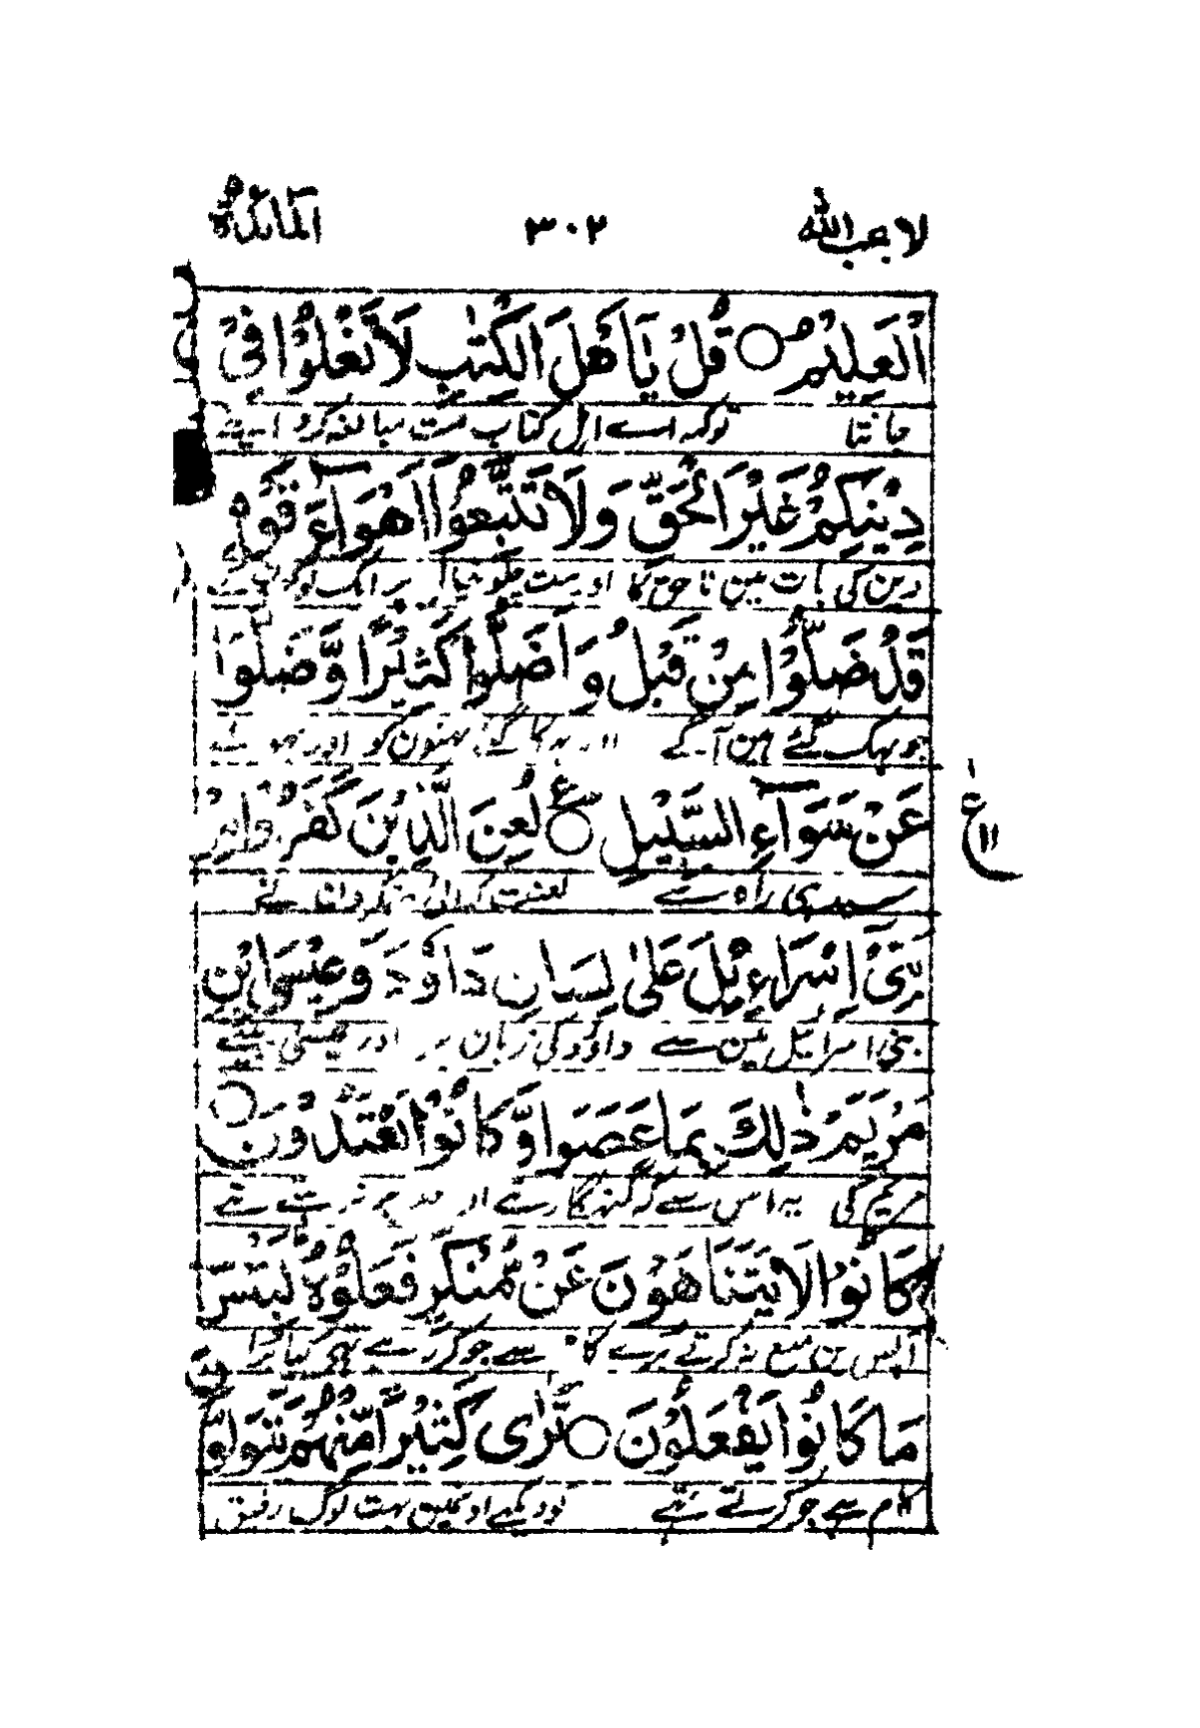 لا یحب الله ۳۰۲ المائدة
الْعَلِيْمُ ○ قُلْ يَاَهْلَ الْكِتٰبِ لَا تَغْلُوْا فِىْ
جانتا توکہہ اے اہل کتاب مت مبالغہ کرو اپنے
دِيْنِكُمْ غَيْرَ الْحَقِّ وَلَا تَتَّبِعُوْا اَهْوَآءَ قَوْمٍ
دین کی بات مین ناحق کا اور مت چلو
قَدْ ضَلُّوْا مِنْ قَبْلُ وَاَضَلُّوْا كَثِيْرًا وَّضَلُّوْا
جو بہک گئے ہین آگے اور بہکا گئے بہتون کو اور
عَنْ سَوَآءِ السَّبِيْلِ ○ ع لُعِنَ الَّذِيْنَ كَفَرُوْا مِنْ
ع ۱۱
سیدھی راہ سے لعنت
بَنِىْۤ اِسْرَاءِيْلَ عَلٰى لِسَانِ دَاوٗدَ وَعِيْسَى ابْنِ
بنی اسرائیل مین سے داؤد کی زبان پر اور عیسی بیٹے
مَرْيَمَ ذٰلِكَ بِمَا عَصَوْا وَّكَانُوْا يَعْتَدُوْنَ ○
مریم کی یہ اس سے کہ گنہگار تھے اور حد پر نہ رہتے تھے
كَانُوْا لَا يَتَنَاهَوْنَ عَنْ مُّنْكَرٍ فَعَلُوْهُ لَبِئْسَ
آپس مین منع نہ کرتے برے کام سے جو کر رہے تھے کیا برا
مَا كَانُوْا يَفْعَلُوْنَ ○ تَرٰى كَثِيْرًا مِّنْهُمْ يَتَوَلَّوْنَ
کام ہے جو کرتے تھے تو دیکھے اونمین بہت لوگ رفیق